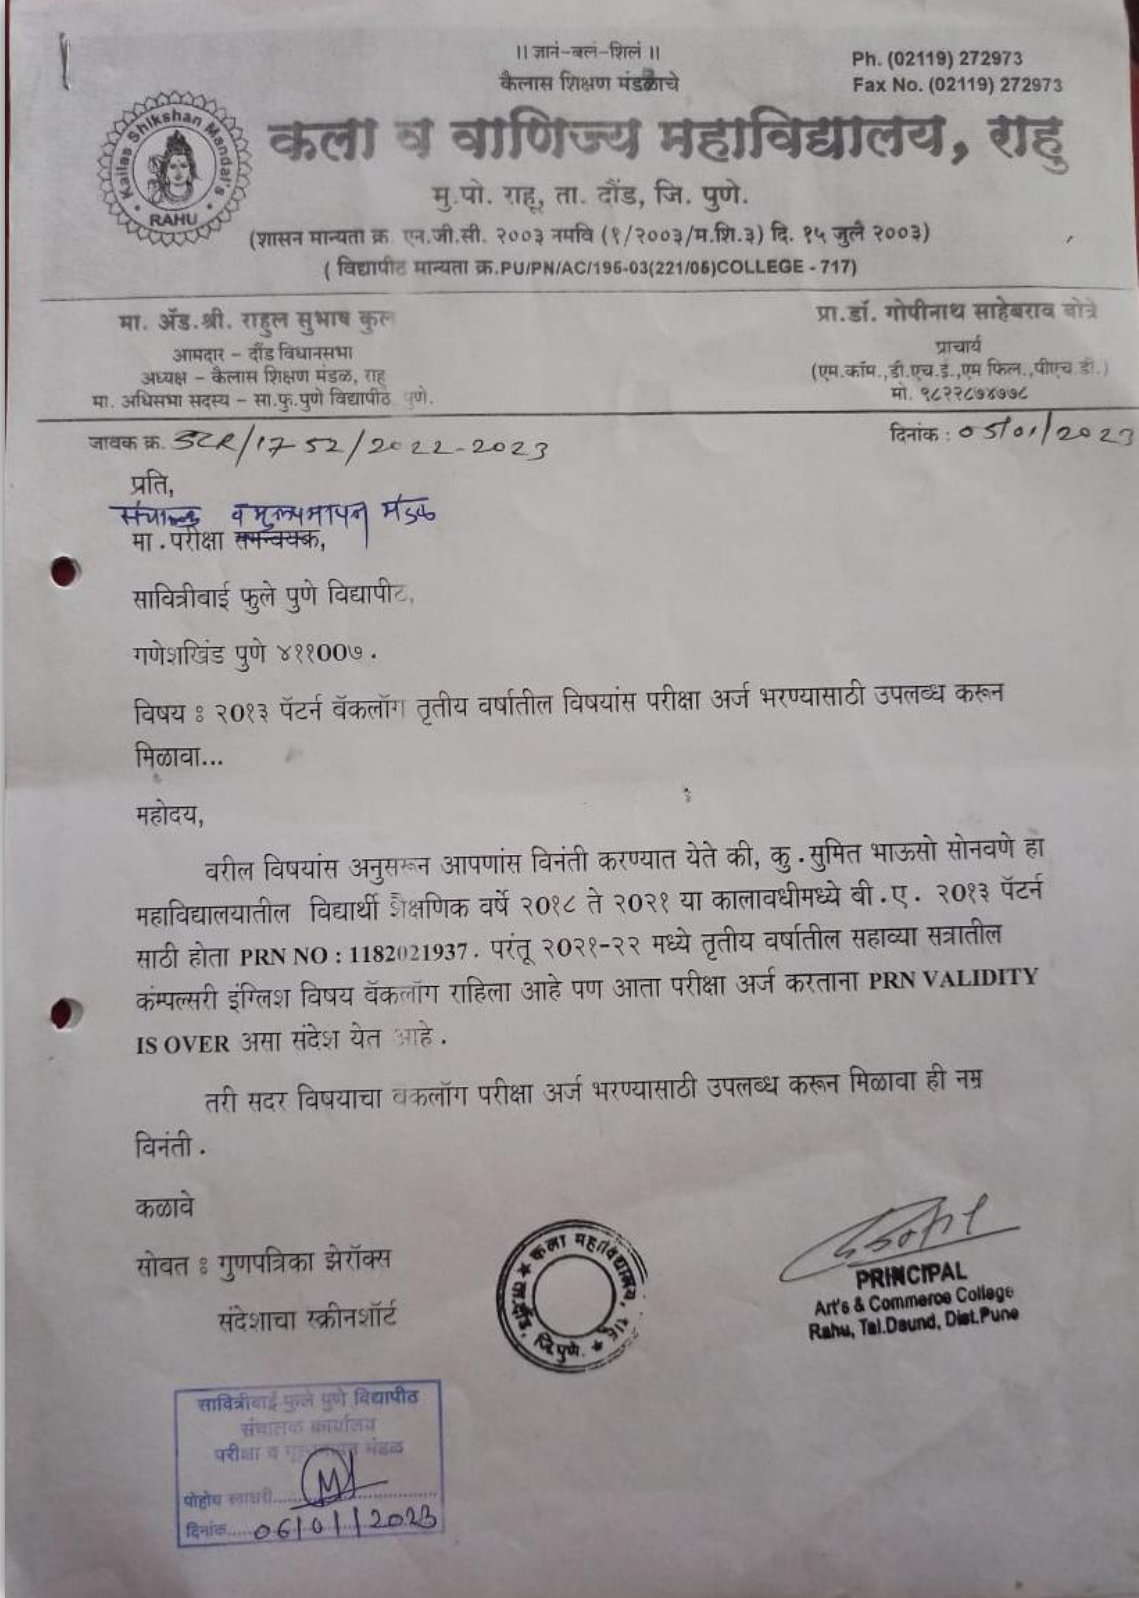 ।। ज्ञानं-बलं-शिलं ।।
कैलास शिक्षण मंडळाचे
Ph. (02119) 272973
Fax No. (02119) 272973
Kailas Shikshan Mandal's
RAHU
कला व वाणिज्य महाविद्यालय, राहु
मु.पो. राहू, ता. दौंड, जि. पुणे.
(शासन मान्यता क्र. एन.जी.सी. २००३ नमवि (१/२००३/म.शि.३) दि. १५ जुलै २००३)
( विद्यापीठ मान्यता क्र.PU/PN/AC/195-03(221/05)COLLEGE - 717)
मा. ॲड.श्री. राहुल सुभाष कुल
आमदार - दौंड विधानसभा
अध्यक्ष - कैलास शिक्षण मंडळ, राहू
मा. अधिसभा सदस्य - सा.फु.पुणे विद्यापीठ पुणे.
प्रा.डॉ. गोपीनाथ साहेबराव बोत्रे
प्राचार्य
(एम.कॉम.,डी.एच.ई.,एम फिल.,पीएच.डी.)
मो. ९८२२८७४७७८
जावक क्र. SCR/1752/2022-2023
दिनांक : 05/01/2023
प्रति,
संचालक व मुल्यमापन मंडळ
मा .परीक्षा समन्वयक,
सावित्रीबाई फुले पुणे विद्यापीट,
गणेशखिंड पुणे ४११00७ .
विषय : २0१३ पॅटर्न बॅकलॉग तृतीय वर्षातील विषयांस परीक्षा अर्ज भरण्यासाठी उपलब्ध करून
मिळावा...
महोदय,
वरील विषयांस अनुसरून आपणांस विनंती करण्यात येते की, कु .सुमित भाऊसो सोनवणे हा
महाविद्यालयातील विद्यार्थी शैक्षणिक वर्षे २0१८ ते २0२१ या कालावधीमध्ये बी .ए . २0१३ पॅटर्न
साठी होता PRN NO : 1182021937 . परंतू २0२१-२२ मध्ये तृतीय वर्षातील सहाव्या सत्रातील
कंम्पल्सरी इंग्लिश विषय बॅकलॉग राहिला आहे पण आता परीक्षा अर्ज करताना PRN VALIDITY
IS OVER असा संदेश येत आहे .
तरी सदर विषयाचा बॅकलॉग परीक्षा अर्ज भरण्यासाठी उपलब्ध करून मिळावा ही नम्र
विनंती .
कळावे
सोबत : गुणपत्रिका झेरॉक्स
संदेशाचा स्क्रीनशॉर्ट
कला महाविद्यालय, राहु ★ ता.दौंड, जि.पुणे. ★
PRINCIPAL
Art's & Commerce College
Rahu, Tal.Daund, Dist.Pune
सावित्रीबाई फुले पुणे विद्यापीठ
संचालक कार्यालय
परीक्षा व मूल्यमापन मंडळ
पोहोच स्वाक्षरी
दिनांक 06/01/2023